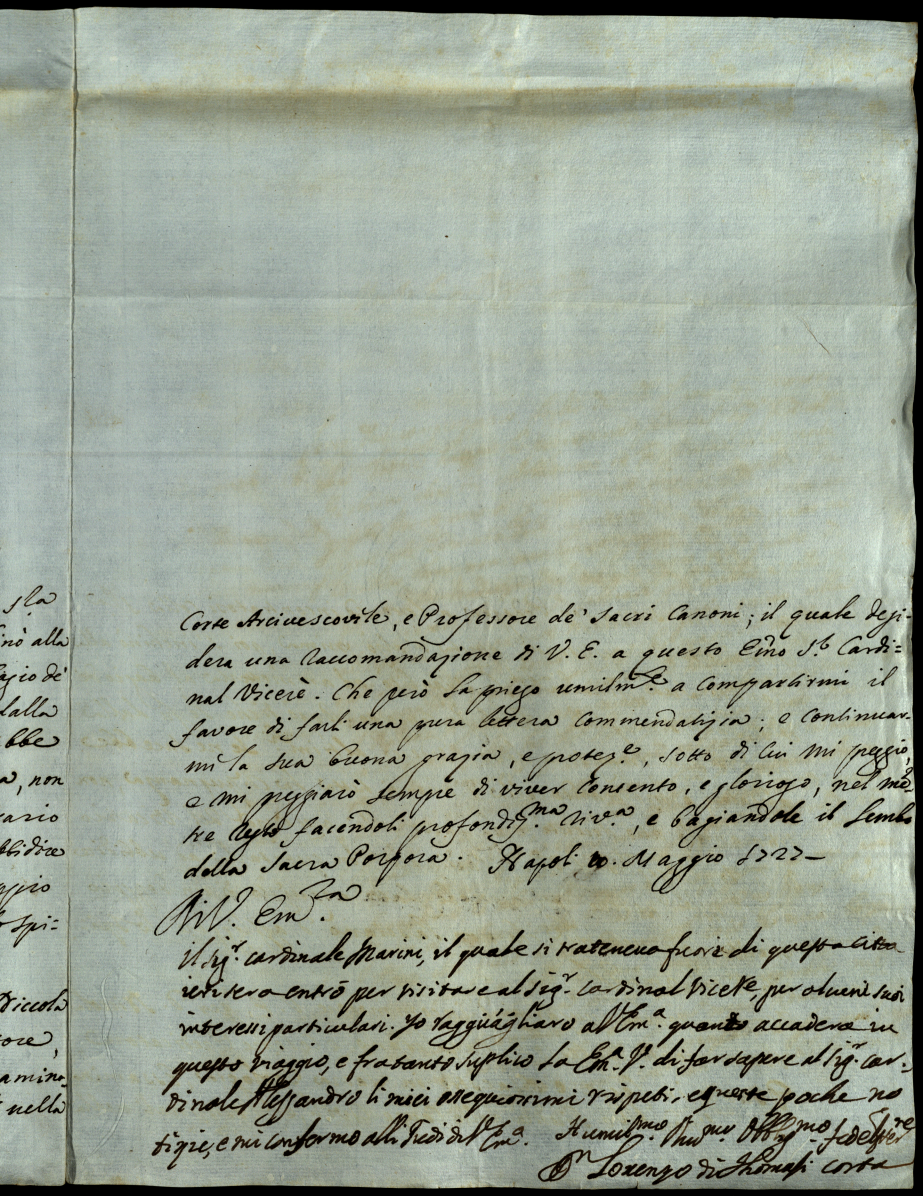 sla
inò alla
agio de'
dalla
bbe
a, non
cario
bbidire
aggio
spi=
Diccola
tore,
amino
nella
Corte Arcivescovile, e Professore de' Sacri Canoni; il quale desi-
dera una raccomandazione di V. E. a questo Emo Sr. Cardi=
nal Vicerè. Che però La priego umilmte. a compartirmi il
favore di farli una pura lettera commendatizia; e continuar-
mi la sua buona grazia, e protezne, sotto di cui mi preggio,
e mi preggiarò sempre di viver contento, e glorioso, nel men
tre resto facendoli profondissma. rivza, e bagiandole il Lembo
della Sacra Porpora. Napoli 10. Maggio 1727_
Di V. Emza.
il Sigr. cardinale Marini, il quale si trateneva fuori di questa citta
ieri sera entrò per visitare al Sigr. cardinal ViceRe, per alcuni suoi
interessi particulari. Jo ragguagliaro a V. Ema. quanto accadera in
questo viaggio, e fratanto suplico La Ema. V. di far sapere al Sigr. car-
dinale Alessandro li miei ossequiosissimi rispeti, e queste poche no
tizie, e mi confermo alli Piedi di V. Ema. Humilmo Divmo Obbligmo fedel servre
Dn Lorenzo di Thomasi corba